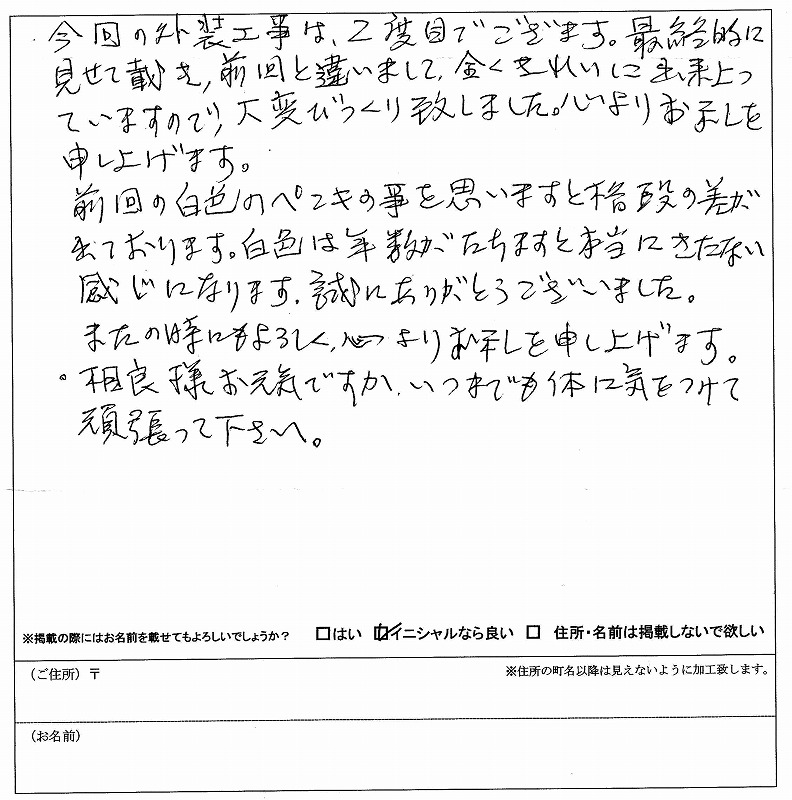 今回の外装工事は、2度目でございます。最終的に
見せて戴き、前回と違いまして、全くきれいに出来上っ
ていますので、大変びっくり致しました。心よりお礼を
申し上げます。
前回の白色のペンキの事を思いますと格段の差が
出ております。白色は年数がたちますと本当にきたない
感じになります。誠にありがとうございました。
またの時にもよろしく、心よりお礼を申し上げます。
。相良様お元気ですか、いつまでも体に気をつけて
頑張って下さい。
※掲載の際にはお名前を載せてもよろしいでしょうか? □はい ☑イニシャルなら良い □ 住所・名前は掲載しないで欲しい
(ご住所)〒 ※住所の町名以降は見えないように加工致します。
(お名前)